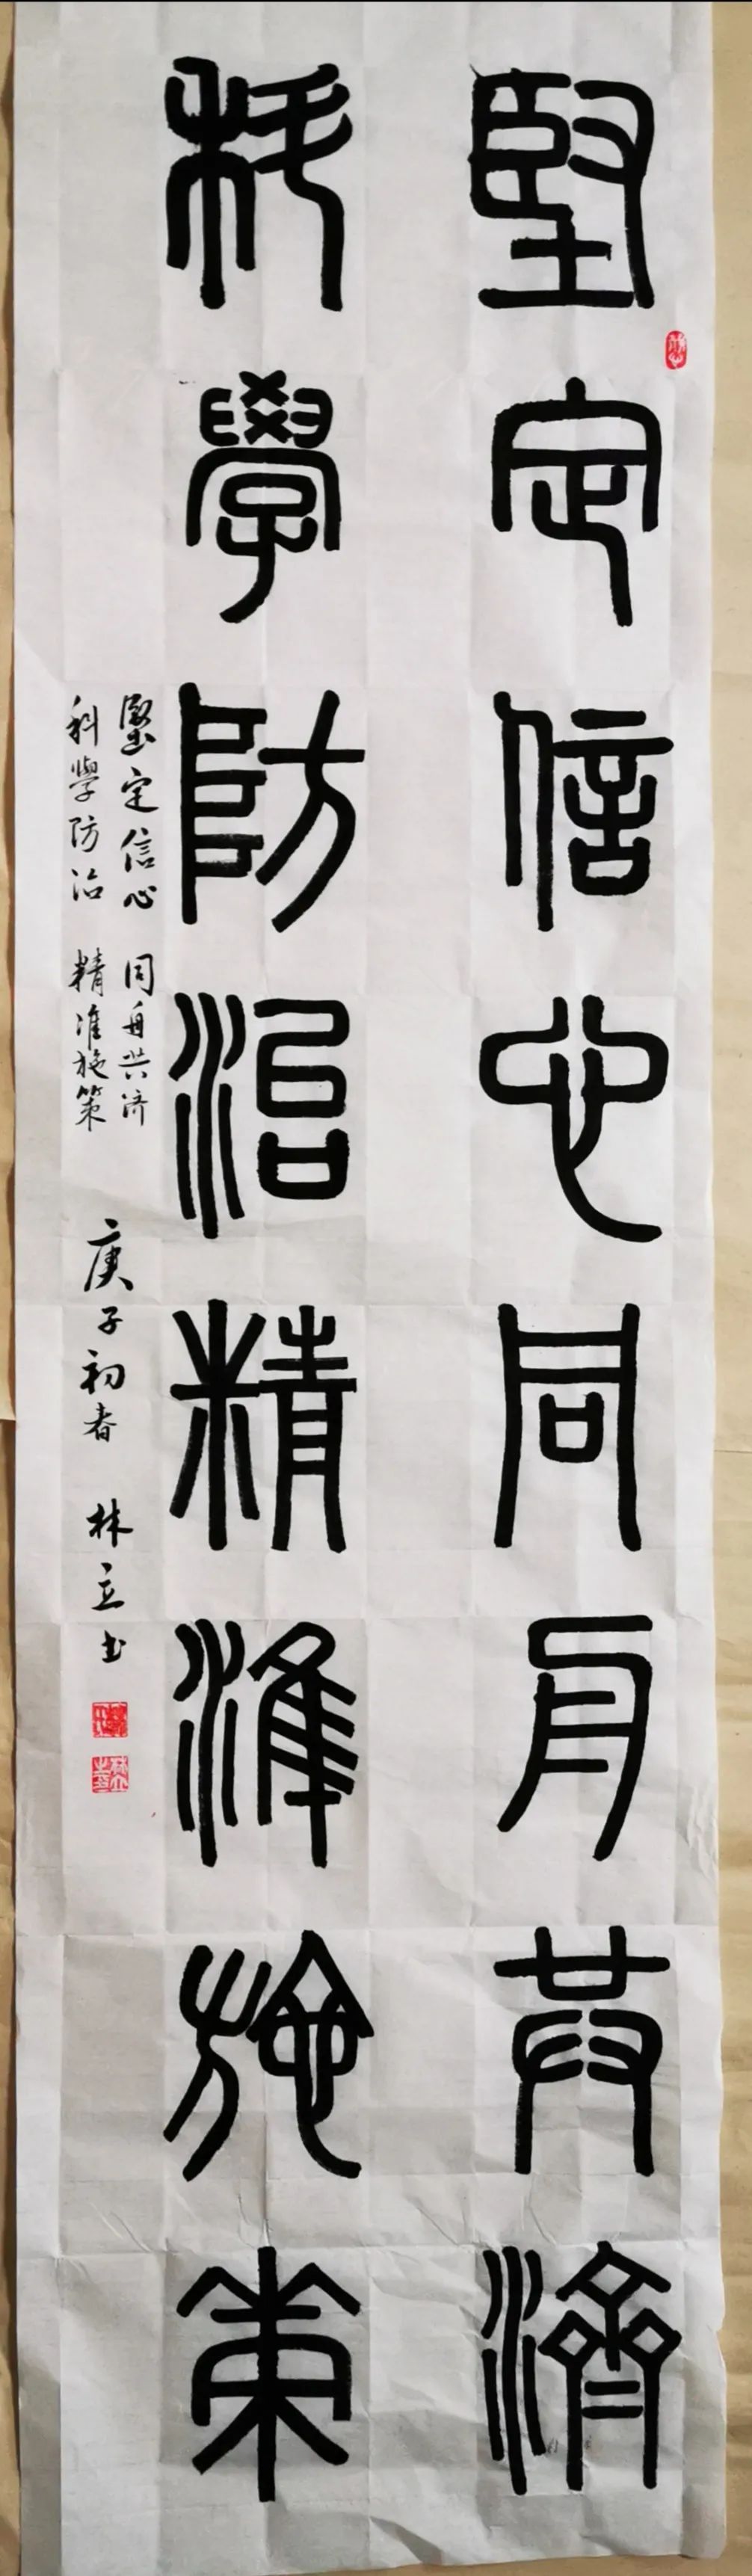 堅定信心同舟共濟
科學防治精準施策
堅定信心 同舟共济
科學防治 精准施策
庚子初春 林立书